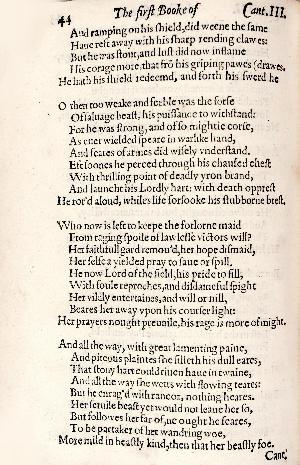 44 The first Booke of Cant. III.
And ramping on his shield, did weene the same
Haue reft away with his sharp rending clawes:
But he was stout, and lust did now inflame
His corage more, that frō his griping pawes
He hath his shield redeemd, and forth his swerd he drawes.
O then too weake and feeble was the forse
Of saluage beast, his puissance to withstand:
For he was strong, and of so mightie corse,
As euer wielded speare in warlike hand,
And feates of armes did wisely vnderstand.
Eft soones he perced through his chaufed chest
With thrilling point of deadly yron brand,
And launcht his Lordly hart: with death opprest
He ror'd aloud, whiles life forsooke his stubborne brest.
Who now is left to keepe the forlorne maid
From raging spoile of lawlesse victors will?
Her faithfull gard remou'd, her hope dismaid,
Her selfe a yielded pray to saue or spill.
He now Lord of the field, his pride to fill,
With foule reproches, and disdainefull spight
Her vildly entertaines, and will or nill,
Beares her away vpon his courser light:
Her prayers nought preuaile, his rage is more of might.
And all the way, with great lamenting paine,
And piteous plaintes she filleth his dull eares,
That stony hart could riuen haue in twaine,
And all the way she wets with flowing teares:
But he enrag'd with rancor, nothing heares.
Her seruile beast yet would not leaue her so,
But followes her far of, ne ought he feares,
To be partaker of her wandring woe,
More mild in beastly kind, then that her beastly foe.
Cant.